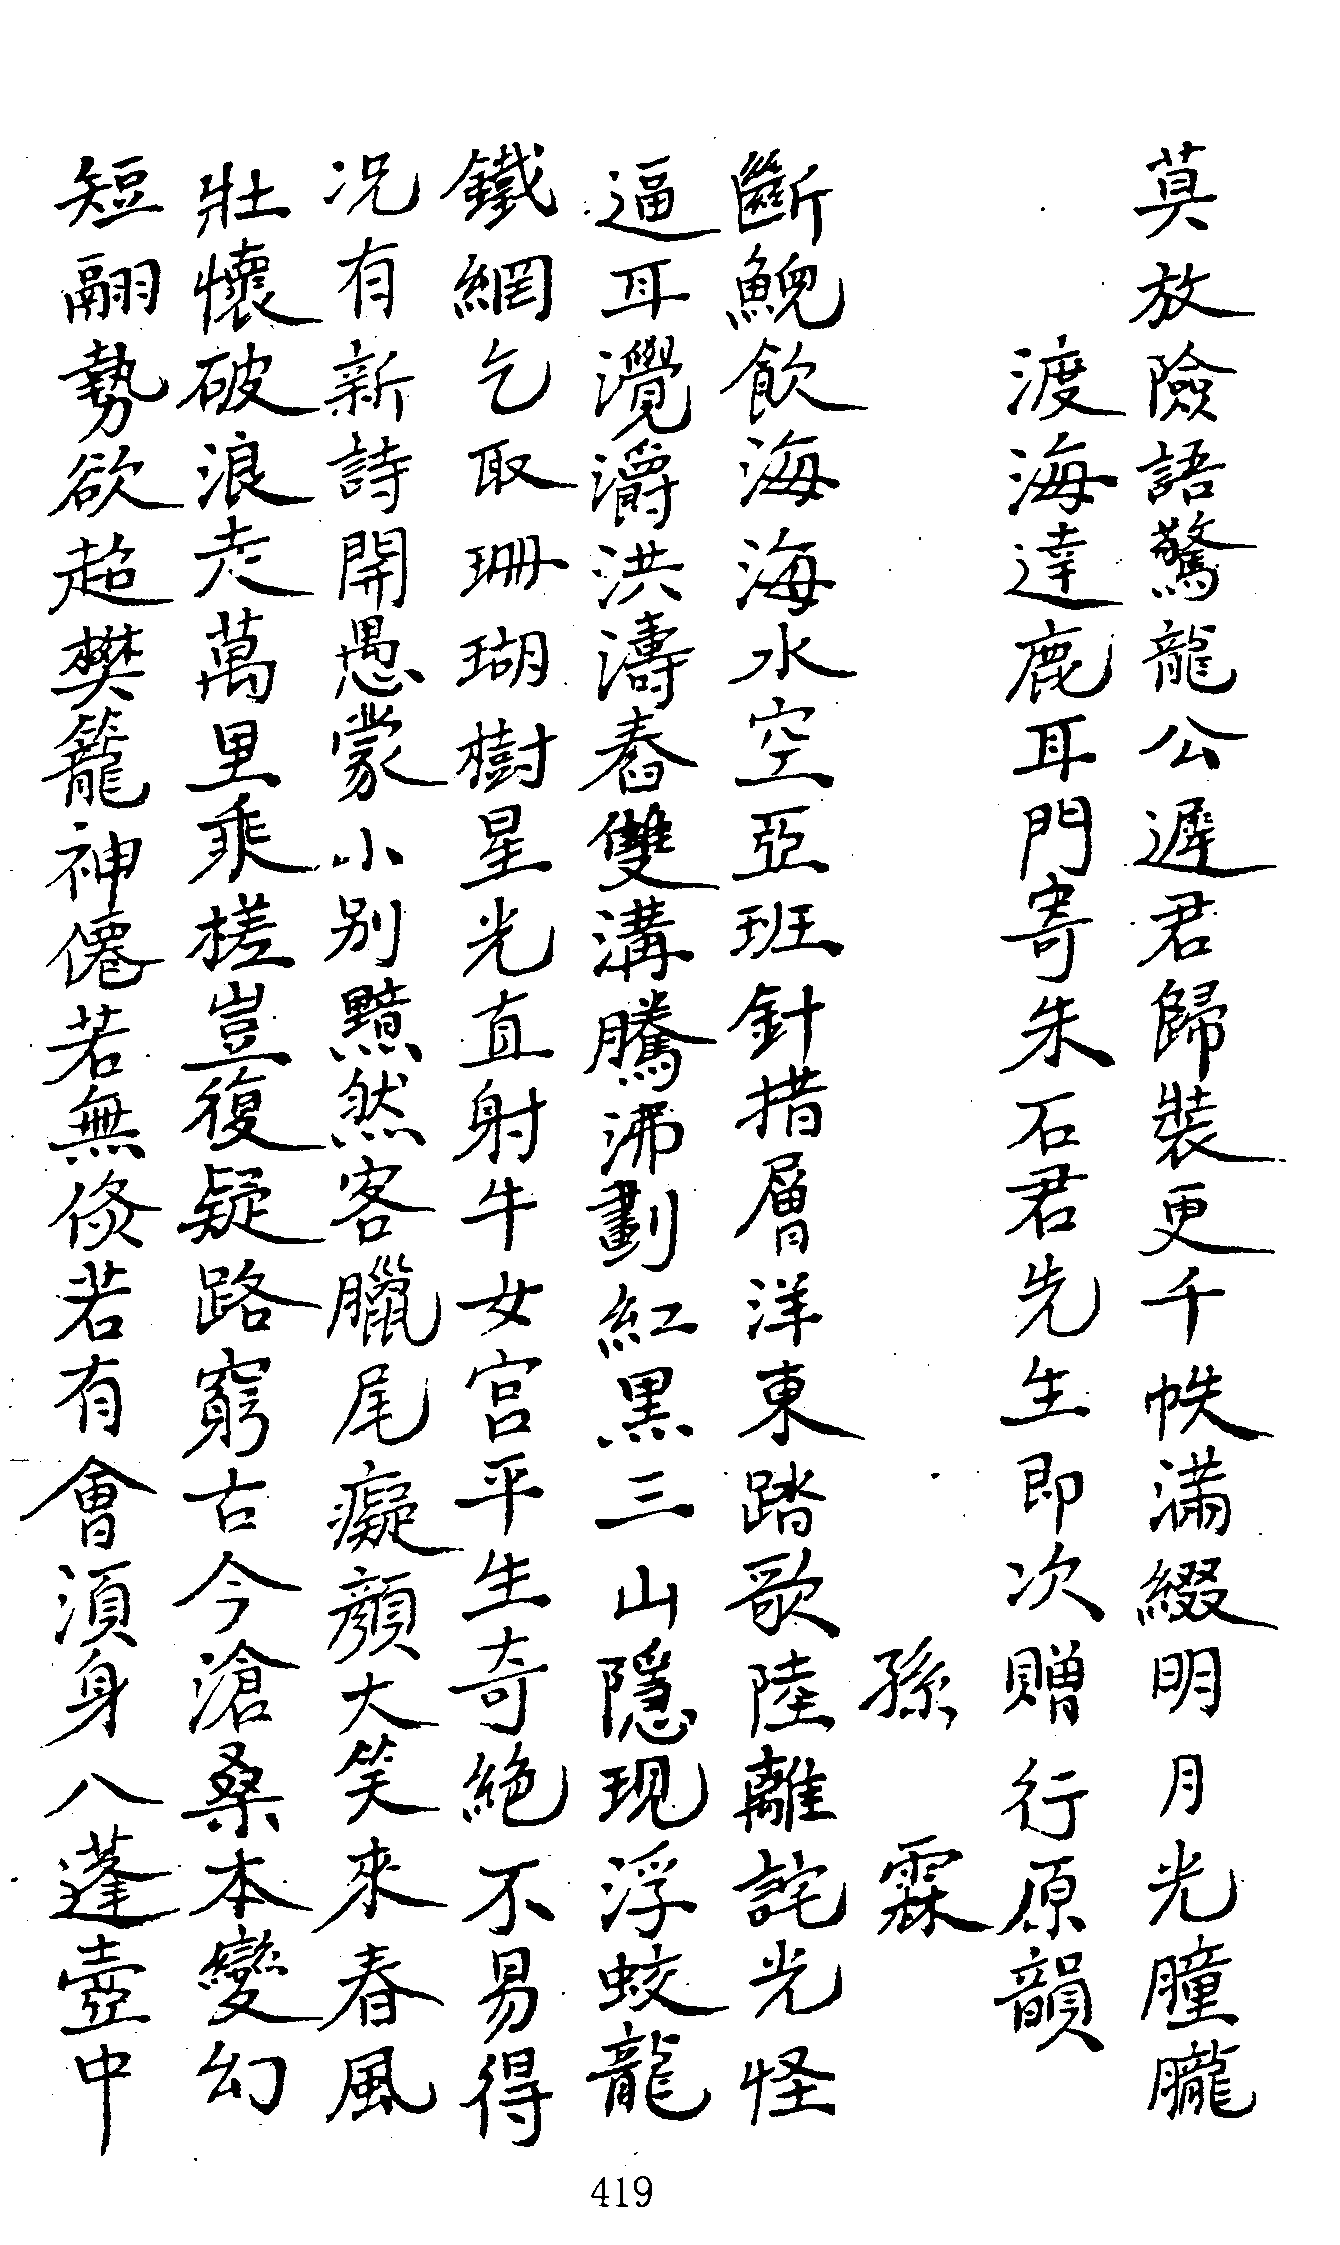 莫放險語驚龍公遲君歸裝更千帙滿綴明月光朣朧
渡海達鹿耳門寄朱石君先生即次贈行原韻
孫霖
斷鯢飲海海水空亞班針措層洋東踏歌陸離詫光怪
逼耳灚灂洪濤舂雙溝騰沸劃紅黑三山隱現浮蛟龍
鐵網乞取珊瑚樹星光直射牛女宮平生奇絕不易得
况有新詩開愚蒙小別黯然客臘尾癡顏大笑來春風
壯懷破浪走萬里乘槎豈復疑路窮古今滄桑本變幻
短翮勢欲超樊籠神僊若無倐若有會須身入蓬壺中
419